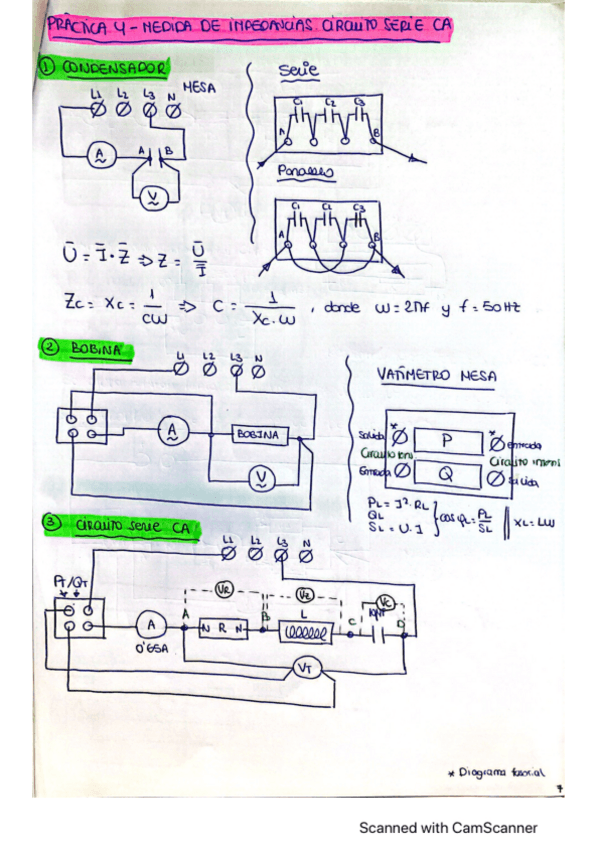 PRÁCTICA 4 - MEDIDA DE IMPEDANCIAS CIRCUITO SERIE CA
① CONDENSADOR
L1 L2 L3 N MESA
A
A B
V
Serie
C1 C2 C3
A B
Paralelo
C1 C2 C3
A B
Ū = Ī · Z̄ => Z = Ū / Ī
Zc = Xc = 1 / CW => C = 1 / Xc · W , donde W = 2πf y f = 50Hz
② BOBINA
L1 L2 L3 N
A
BOBINA
V
VATÍMETRO MESA
Salida * P * entrada
Entrada Q salida
PL = I² · RL
QL
SL = U · I
cos φL = PL / SL
XL = LW
③ Circuito serie CA
L1 L2 L3 N
PT/QT
* *
VR
A
0'65A
A
N R N
B
L
C
VC
D
VT
* Diagrama fasorial
7
Scanned with CamScanner